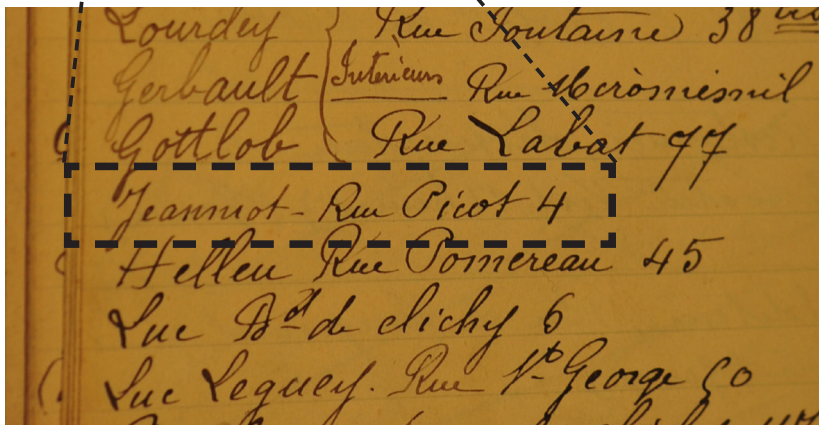 Lourdey Rue Fontaine 38 bis
Gerbault Intérieurs Rue Miròmesnil
Gottlob Rue Labat 77
Jeanniot - Rue Picot 4
Helleu Rue Pomereau 45
Luc Bd de Clichy 6
Luc Leguey. Rue St George 50